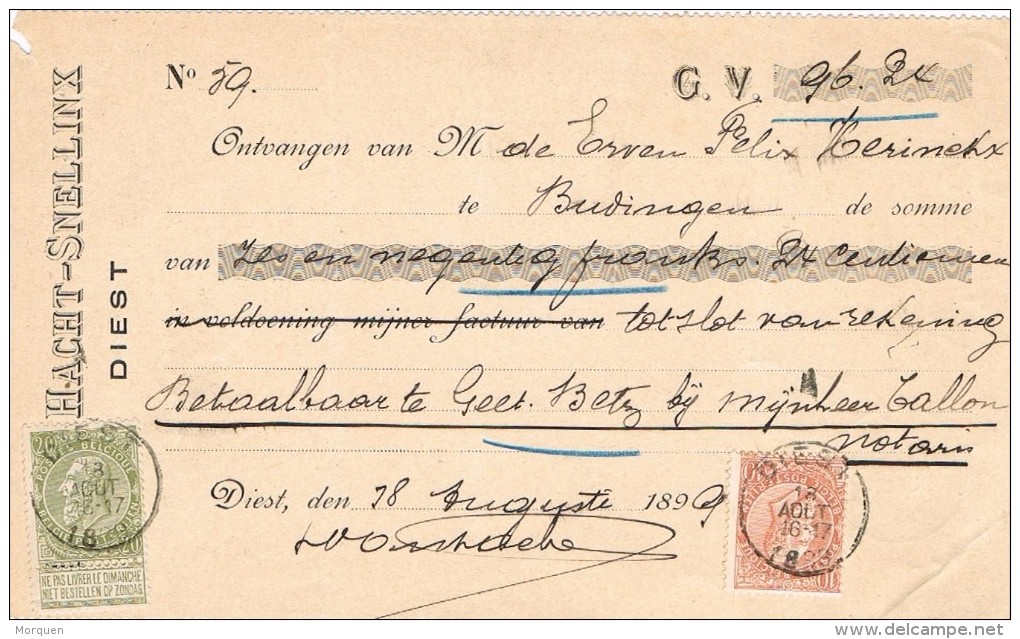 HACHT-SNELLINX
DIEST
Nº 59.
G. V. 96.24
Ontvangen van M de Erven Felix Herinckx
te Budingen de somme
van Zes en negentig franks. 24 Centiemen
in voldoening mijner factuur van tot slot van rekening
Betaalbaar te Geet. Betz bij Mijnheer Tallon
Notaris
Diest, den 18 Auguste 1899
20 BELGIQUE 20
NE PAS LIVRER LE DIMANCHE
NIET BESTELLEN OP ZONDAG
18
AOUT
16-17
DIEST
18
AOUT
16-17
10 10
Morquen
delcampe.net